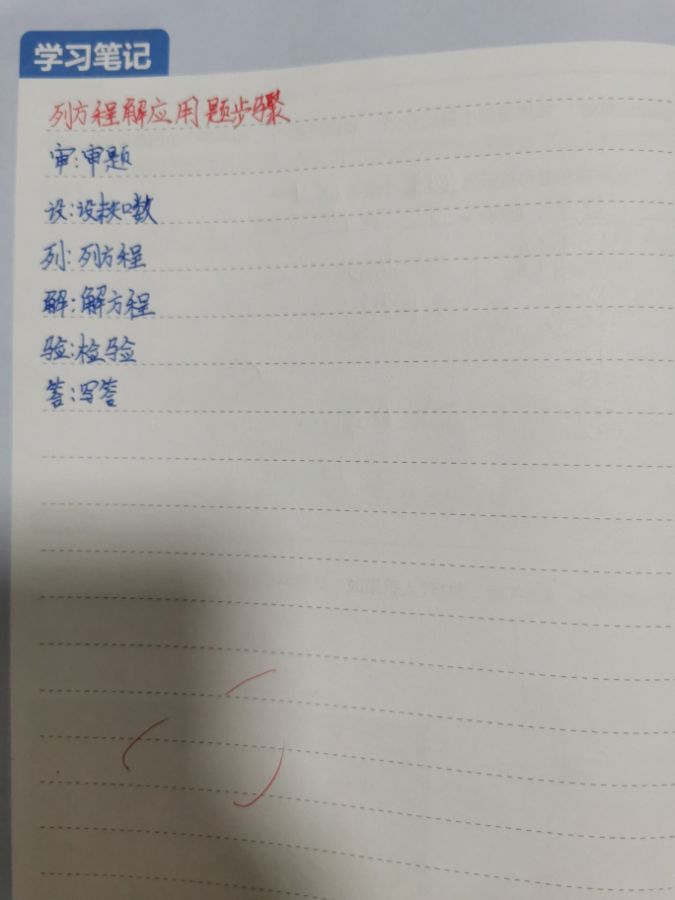 学习笔记
列方程解应用题步骤
审:审题
设:设未知数
列:列方程
解:解方程
验:检验
答:写答